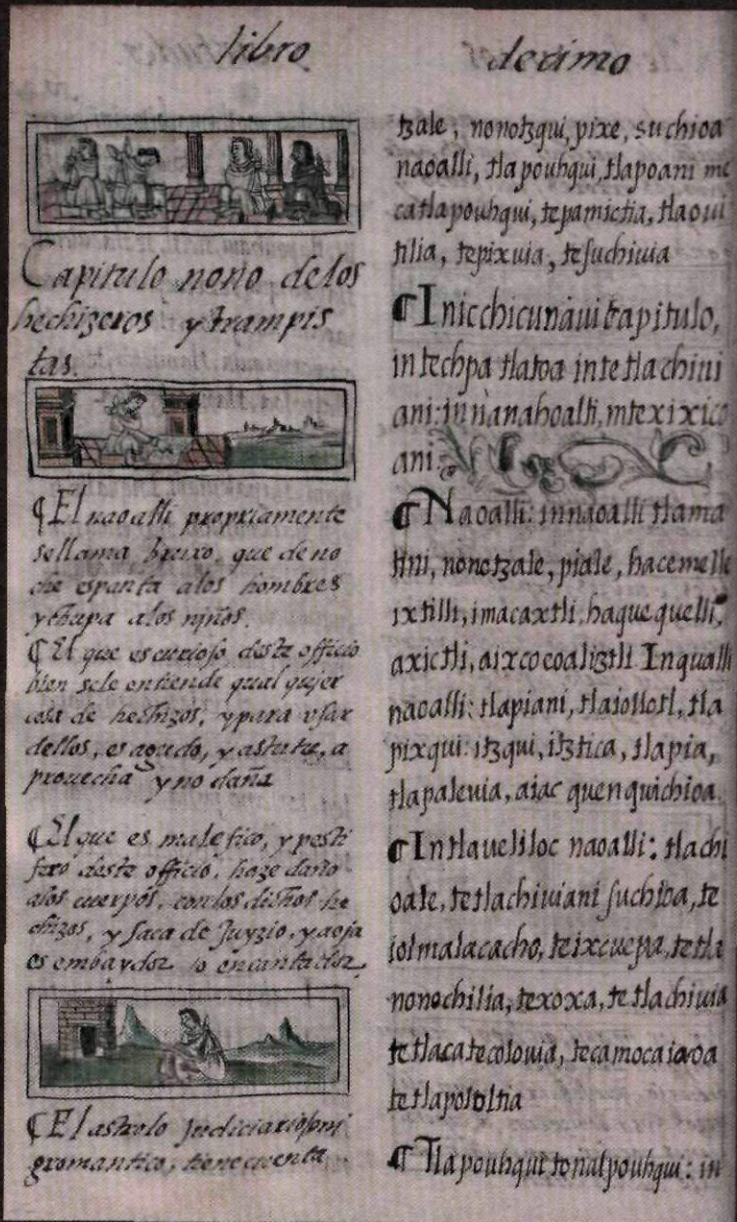 libro decimo
Capitulo nono de los
hechizeros y trampis
tas.
¶ El naoalli propriamente
se llama bruxo, que de no
che espanta a los hombres
y chupa a los niños.
¶ El que es curioso deste officio
bien se le entiende qualqujer
cosa de hechizos, y para vsar
dellos, es agudo, y astuto, a
prouecha y no daña
¶ El que es malefico, y pesti
fero deste officio, haze daño
a los cuerpos, con los dichos he
chizos, y saca de Juyzio, y aoja
es embaydor, o encantador.
¶ El astrolo Judiciario,
gromantico, tiene cuenta
tzale, nonotzqui, pixe, suchioa
naoalli, tlapouhqui, tlapoani me
catlapouhqui, tepamictia, tlaoui
tilia, tepixuia, tesuchiuia
¶ Inic chicunaui Capitulo,
intechpa tlatoa in tetlachiui
ani: in nanahoalti, in texixico
ani.
¶ Naoalli: in naoalli tlama
tini, nonotzale, piale, hacemelle
ixtilli, imacaxtli, haquequelli,
axictli, aixcocoaliztli In qualli
naoalli: tlapiani, tlaiollotl, tla
pixqui: itzqui, itztica, tlapia,
tlapaleuia, aiac quen quichioa.
¶ In tlaueliloc naoalli: tlachi
oale, tetlachiuiani suchioa, te
iolmalacacho, teixcuepa, tetla
nonochilia, texoxa, tetlachiuia
tetlacatecolouia, tecamocaiaoa
tetlapololtia
¶ Tlapouhqui tonalpouhqui: in